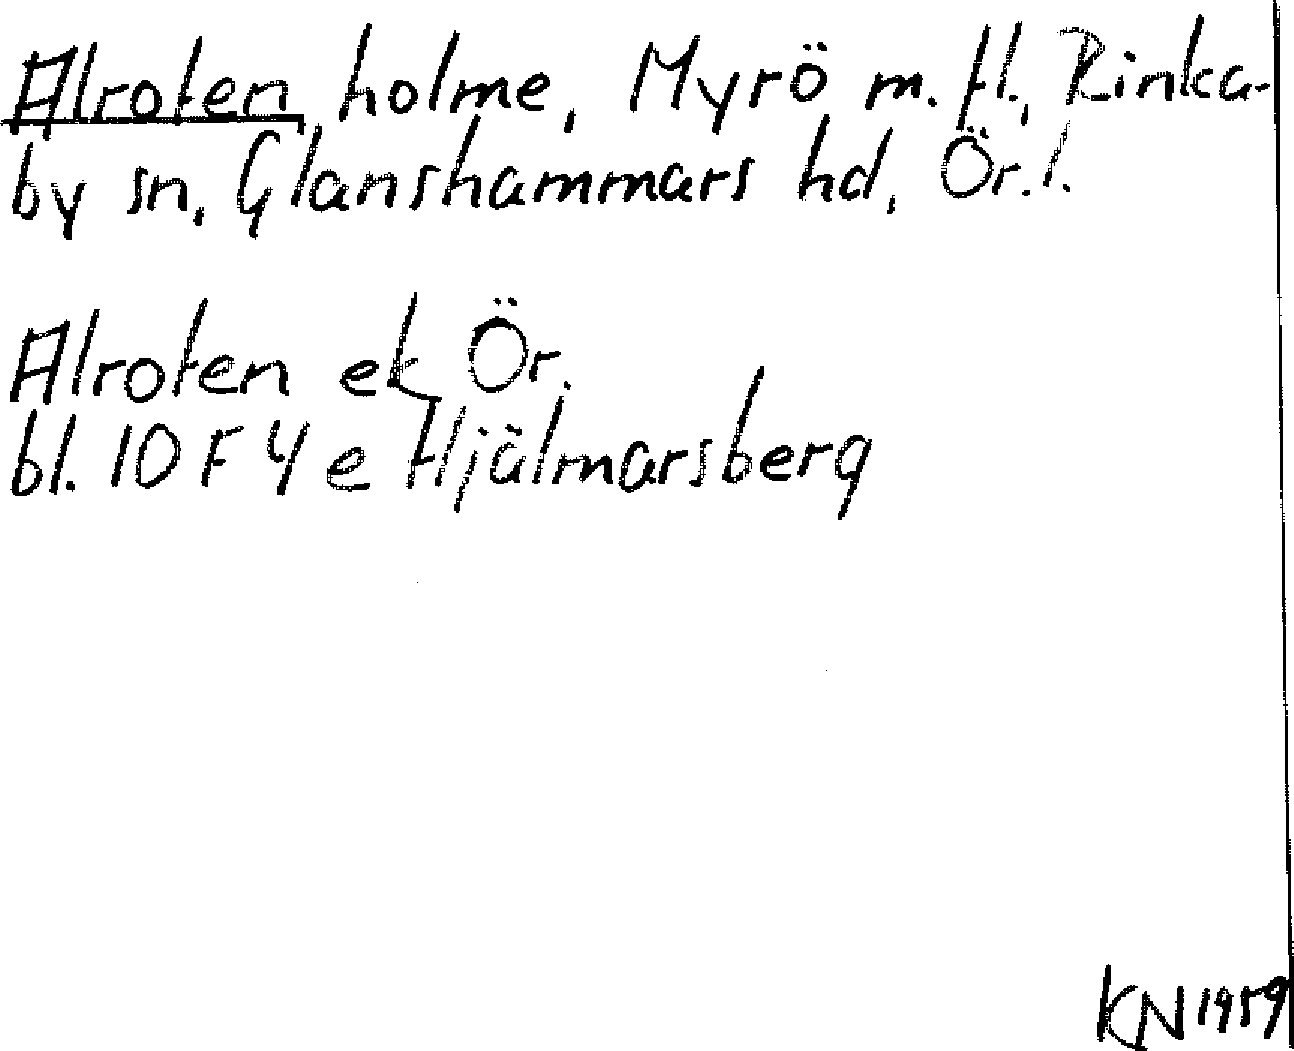 Alroten, holme, Myrö m. fl., Rinka-
by sn, Glanshammars hd, Ör. l.
Alroten ek Ör.
bl. 10 F 4 e Hjälmarsberg
KN 1959